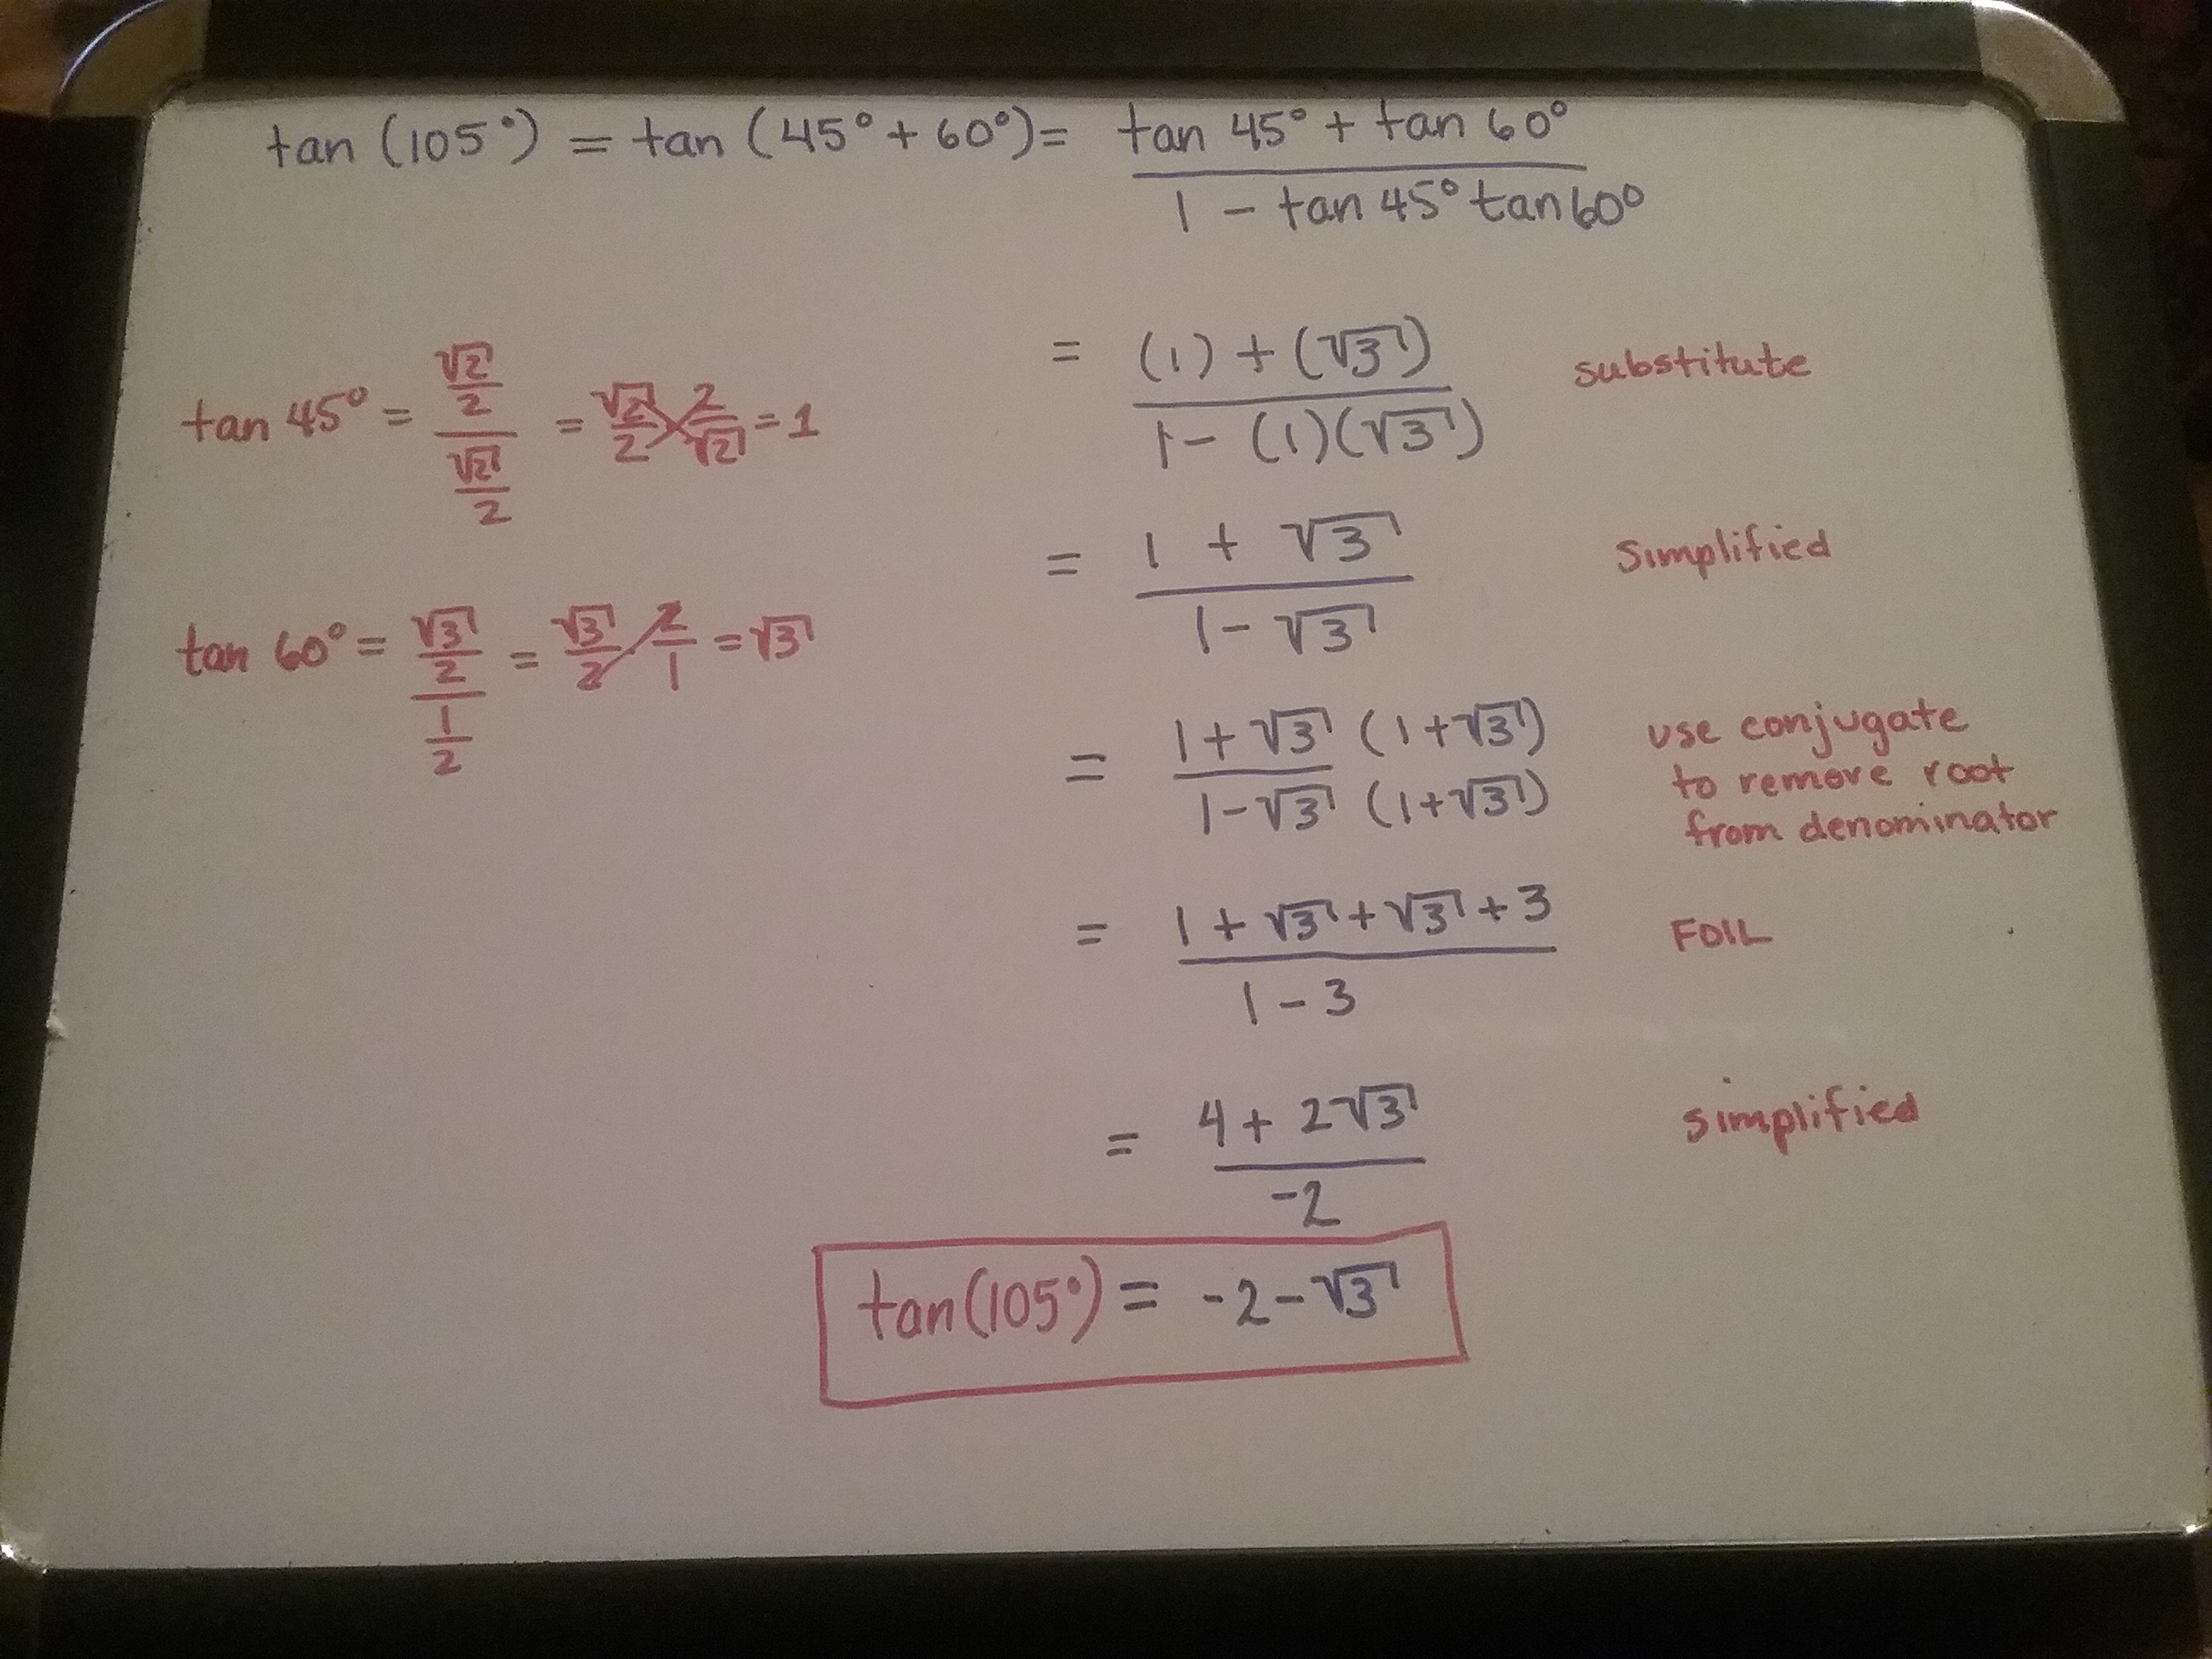 tan (105°) = tan (45° + 60°) = (tan 45° + tan 60°) / (1 - tan 45° tan 60°)
= ((1) + (√3)) / (1 - (1)(√3)) substitute
tan 45° = (√2/2) / (√2/2) = √2/2 · 2/√2 = 1
= (1 + √3) / (1 - √3) Simplified
tan 60° = (√3/2) / (1/2) = √3/2 · 2/1 = √3
= (1 + √3 (1 + √3)) / (1 - √3 (1 + √3)) use conjugate
to remove root
from denominator
= (1 + √3 + √3 + 3) / (1 - 3) FOIL
= (4 + 2√3) / -2 simplified
tan(105°) = -2 - √3